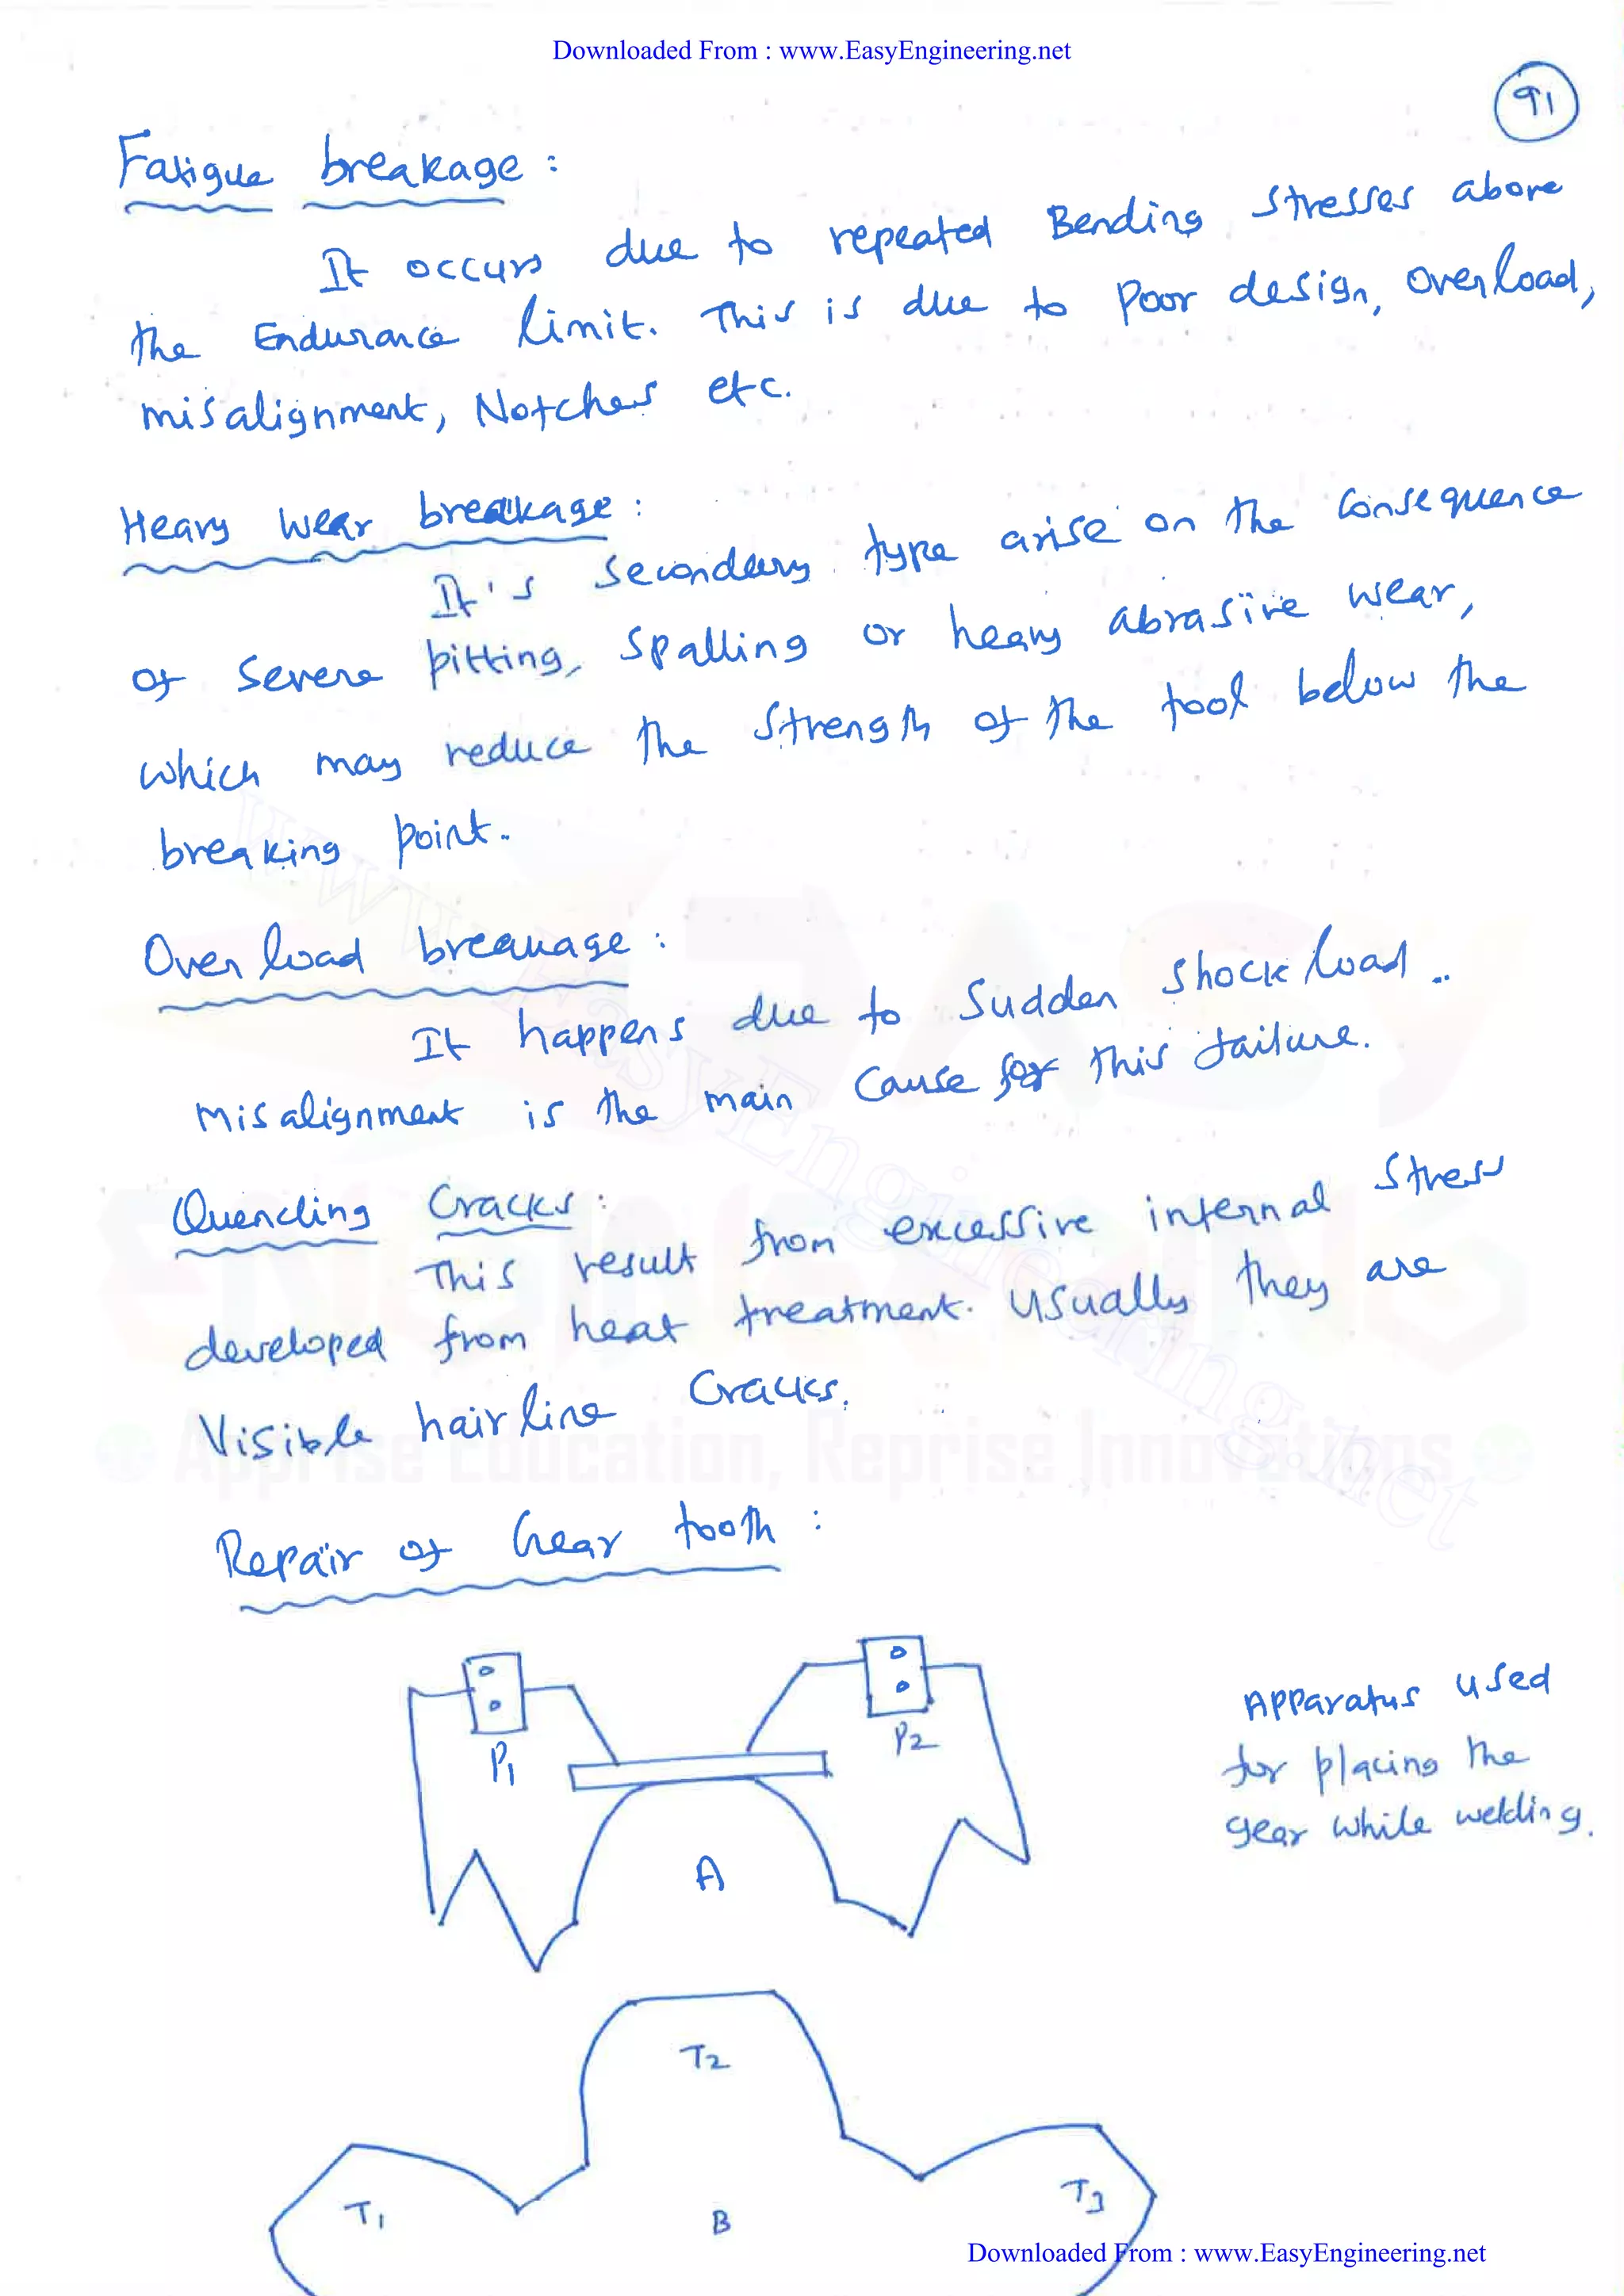 Downloaded From : www.EasyEngineering.net
91
Fatigue breakage :
It occurs due to repeated Bending Stresses above
the Endurance limit. This is due to Poor design, overload,
misalignment, Notches etc.
Heavy wear breakage :
It's Secondary type arise on the Consequence
of Severe pitting, Spalling or heavy abrasive wear,
which may reduce the Strength of the tool below the
breaking point.
Over load breakage :
It happens due to Sudden Shock load.
Misalignment is the main Cause for this failure.
Quenching Cracks :
This result from excessive internal Stress
developed from heat treatment. Usually they are
Visible hairline Cracks.
Repair of Gear tooth :
P1
P2
Apparatus used
for placing the
gear while welding.
A
T2
T1
T3
B
Downloaded From : www.EasyEngineering.net
www.EasyEngineering.net
EASY
ENGINEERING
Apprise Education, Reprise Innovations